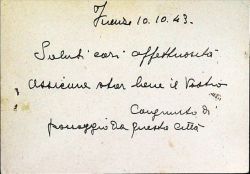 Firenze 10.10.43.
Saluti cari affettuosità
assicuro star bene il Vostro
Congiunto di
passaggio da questa città